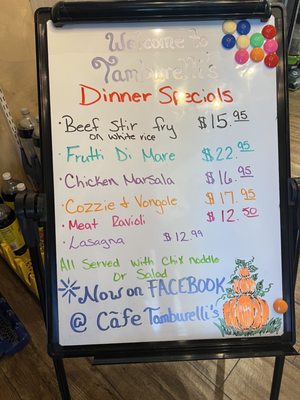 Welcome to
Tamburelli's
Dinner Specials
· Beef Stir fry $15.95
on white rice
· Frutti Di Mare $22.95
· Chicken Marsala $16.95
· Cozzie & Vongole $17.95
· Meat Ravioli $12.50
· Lasagna $12.99
All Served with Chix noddle
Or Salad
* Now on FACEBOOK
@ Cafe Tamburelli's